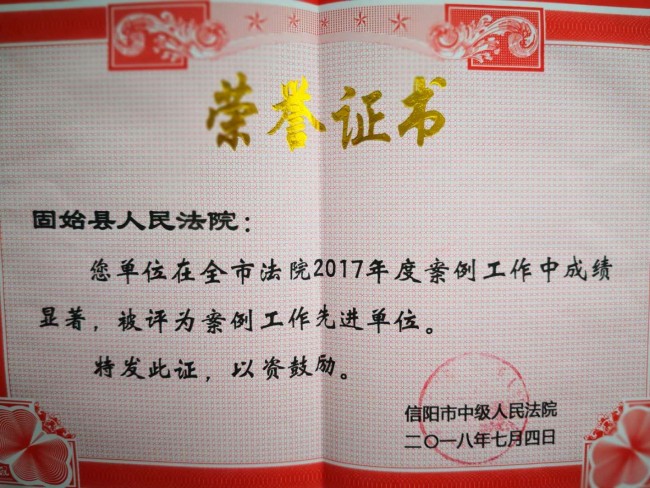 荣誉证书
固始县人民法院：
您单位在全市法院2017年度案例工作中成绩
显著，被评为案例工作先进单位。
特发此证，以资鼓励。
信阳市中级人民法院
二〇一八年七月四日